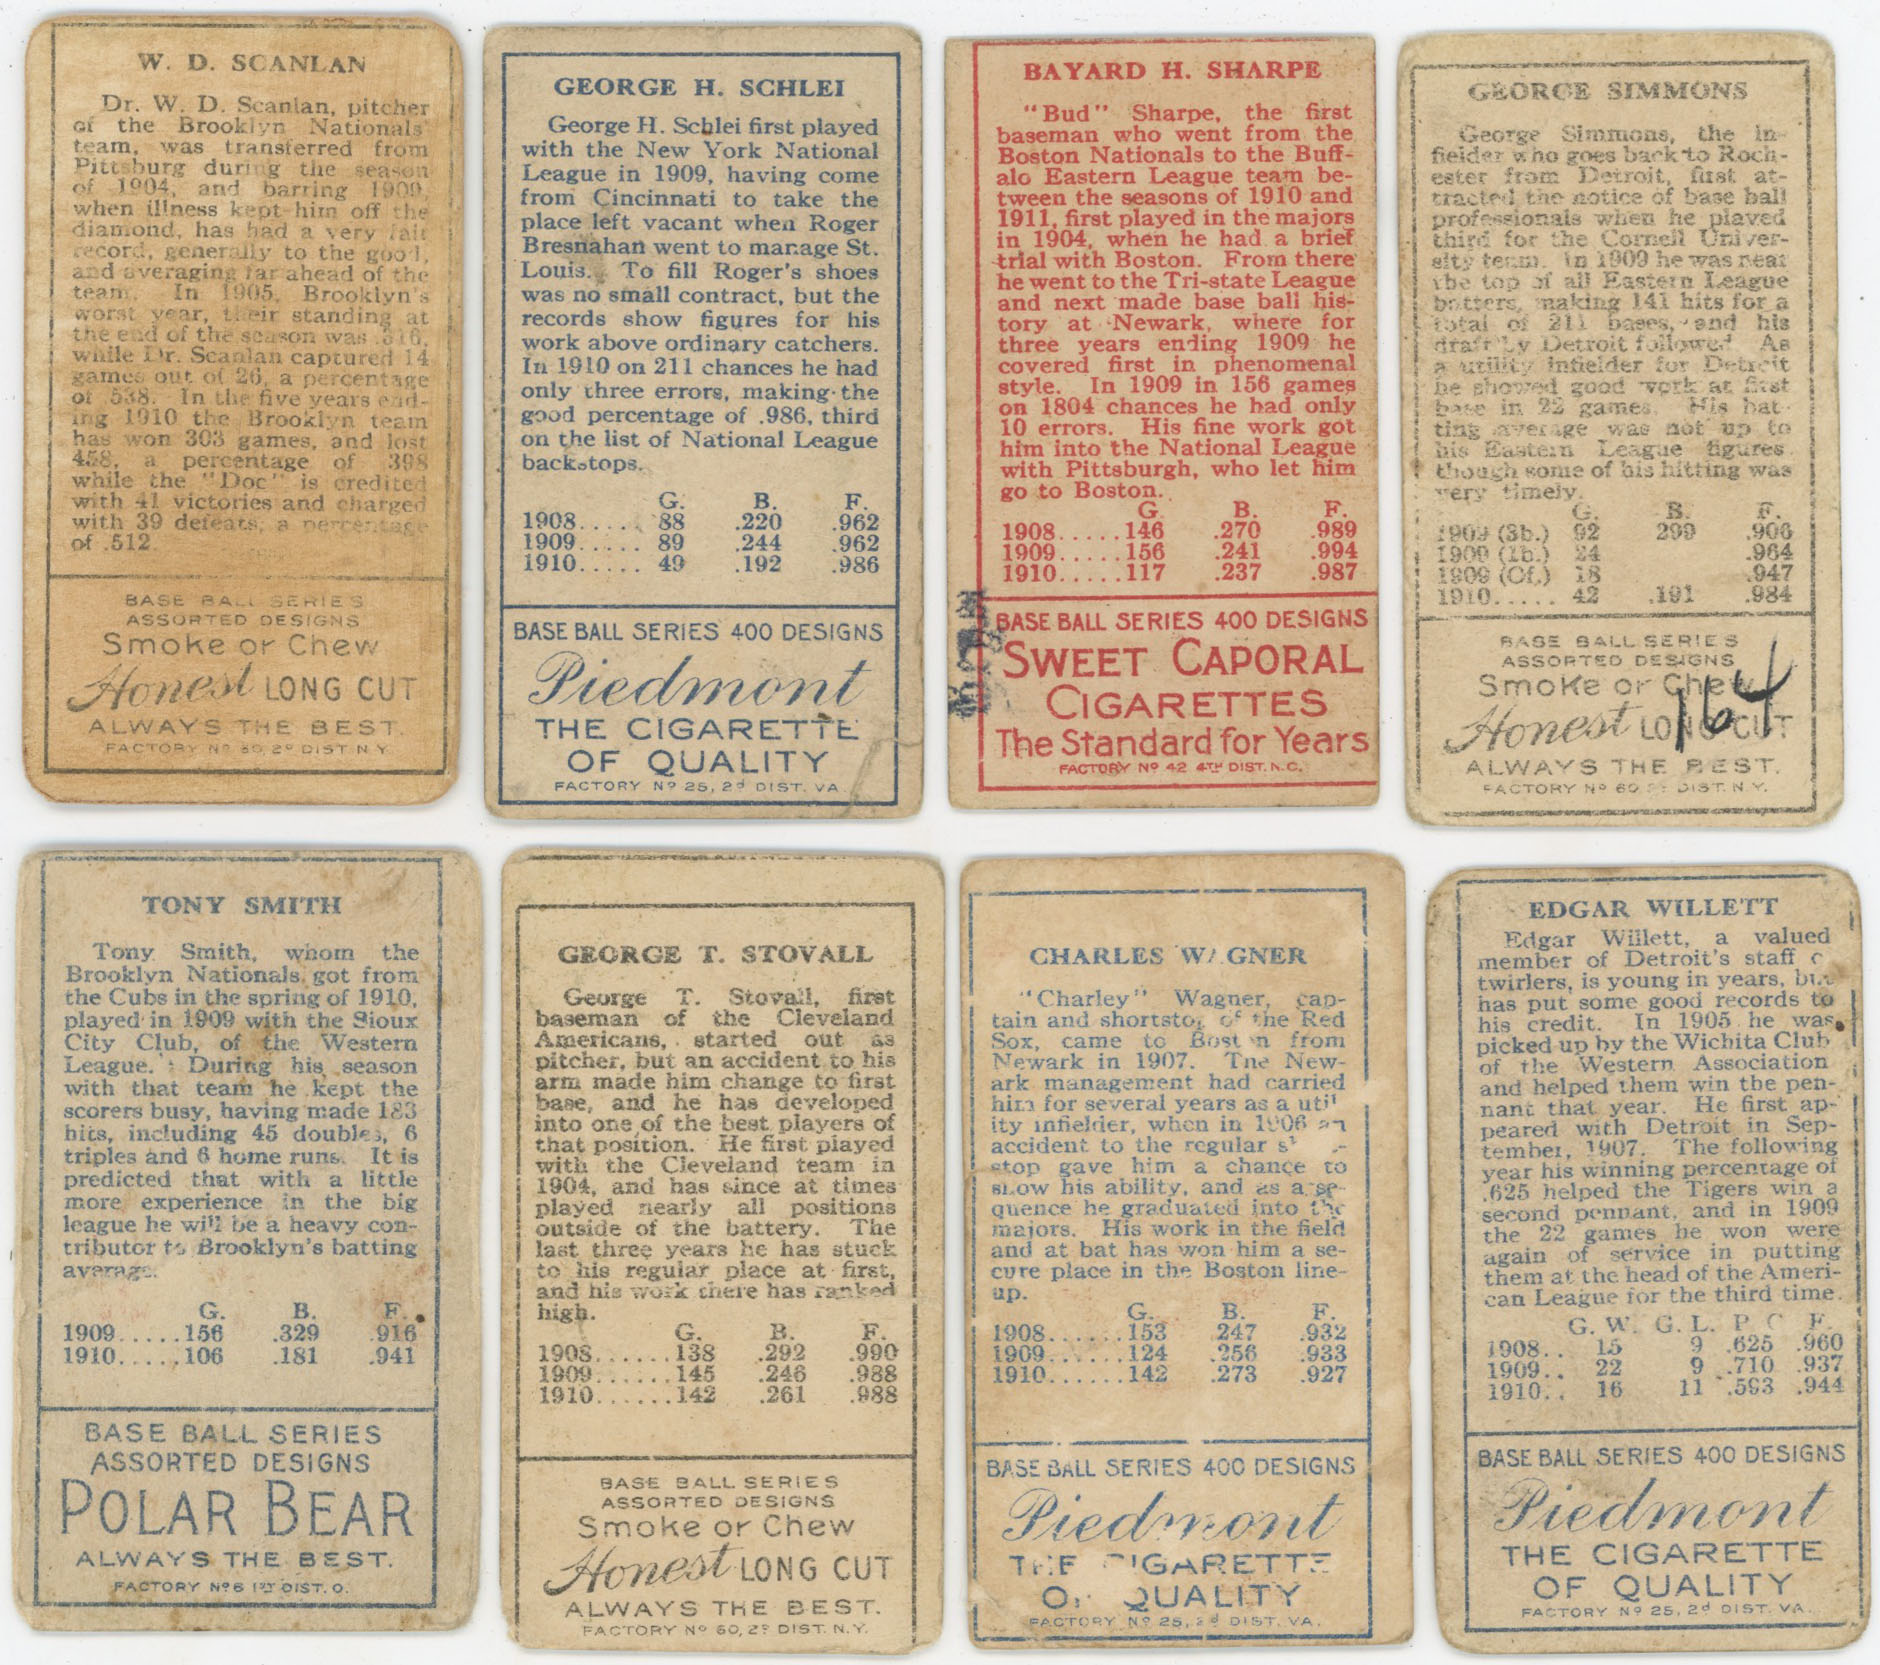 W. D. SCANLAN
Dr. W. D. Scanlan, pitcher
of the Brooklyn Nationals'
team, was transferred from
Pittsburg during the season
of 1904, and barring 1909,
when illness kept him off the
diamond, has had a very fair
record, generally to the good,
and averaging far ahead of the
team. In 1905, Brooklyn's
worst year, their standing at
the end of the season was .316,
while Dr. Scanlan captured 14
games out of 26, a percentage
of .538. In the five years end-
ing 1910 the Brooklyn team
has won 303 games, and lost
458, a percentage of .398
while the "Doc" is credited
with 41 victories and charged
with 39 defeats, a percentage
of .512.
BASE BALL SERIES
ASSORTED DESIGNS
Smoke or Chew
Honest LONG CUT
ALWAYS THE BEST.
FACTORY Nº 60, 2º DIST. N.Y.
GEORGE H. SCHLEI
George H. Schlei first played
with the New York National
League in 1909, having come
from Cincinnati to take the
place left vacant when Roger
Bresnahan went to manage St.
Louis. To fill Roger's shoes
was no small contract, but the
records show figures for his
work above ordinary catchers.
In 1910 on 211 chances he had
only three errors, making the
good percentage of .986, third
on the list of National League
backstops.
G. B. F.
1908..... 88 .220 .962
1909..... 89 .244 .962
1910..... 49 .192 .986
BASE BALL SERIES 400 DESIGNS
Piedmont
THE CIGARETTE
OF QUALITY
FACTORY Nº 25, 2d DIST. VA.
BAYARD H. SHARPE
"Bud" Sharpe, the first
baseman who went from the
Boston Nationals to the Buff-
alo Eastern League team be-
tween the seasons of 1910 and
1911, first played in the majors
in 1904, when he had a brief
trial with Boston. From there
he went to the Tri-state League
and next made base ball his-
tory at Newark, where for
three years ending 1909 he
covered first in phenomenal
style. In 1909 in 156 games
on 1804 chances he had only
10 errors. His fine work got
him into the National League
with Pittsburgh, who let him
go to Boston.
G. B. F.
1908.....146 .270 .989
1909.....156 .241 .994
1910.....117 .237 .987
BASE BALL SERIES 400 DESIGNS
SWEET CAPORAL
CIGARETTES
The Standard for Years
FACTORY Nº 42 4TH DIST. N.C.
GEORGE SIMMONS
George Simmons, the in-
fielder who goes back to Roch-
ester from Detroit, first at-
tracted the notice of base ball
professionals when he played
third for the Cornell Univer-
sity team. In 1909 he was near
the top of all Eastern League
batters, making 141 hits for a
total of 211 bases, and his
draft by Detroit followed. As
a utility infielder for Detroit
he showed good work at first
base in 22 games. His bat-
ting average was not up to
his Eastern League figures
though some of his hitting was
very timely.
G. B. F.
1909 (3b.) 92 299 .906
1909 (1b.) 24 .964
1909 (Of.) 18 .947
1910..... 42 .191 .984
BASE BALL SERIES
ASSORTED DESIGNS
Smoke or Chew
164
Honest LONG CUT
ALWAYS THE BEST.
FACTORY Nº 60 2º DIST. N.Y.
TONY SMITH
Tony Smith, whom the
Brooklyn Nationals got from
the Cubs in the spring of 1910,
played in 1909 with the Sioux
City Club, of the Western
League. During his season
with that team he kept the
scorers busy, having made 183
hits, including 45 doubles, 6
triples and 6 home runs. It is
predicted that with a little
more experience in the big
league he will be a heavy con-
tributor to Brooklyn's batting
average.
G. B. F.
1909.....156 .329 .916
1910.....106 .181 .941
BASE BALL SERIES
ASSORTED DESIGNS
POLAR BEAR
ALWAYS THE BEST.
FACTORY Nº 6 1ST DIST. O.
GEORGE T. STOVALL
George T. Stovall, first
baseman of the Cleveland
Americans, started out as
pitcher, but an accident to his
arm made him change to first
base, and he has developed
into one of the best players of
that position. He first played
with the Cleveland team in
1904, and has since at times
played nearly all positions
outside of the battery. The
last three years he has stuck
to his regular place at first,
and his work there has ranked
high.
G. B. F.
1908......138 .292 .990
1909......145 .246 .988
1910......142 .261 .988
BASE BALL SERIES
ASSORTED DESIGNS
Smoke or Chew
Honest LONG CUT
ALWAYS THE BEST.
FACTORY Nº 60, 2º DIST. N.Y.
CHARLES WAGNER
"Charley" Wagner, cap-
tain and shortstop of the Red
Sox, came to Boston from
Newark in 1907. The New-
ark management had carried
him for several years as a util-
ity infielder, when in 1906 an
accident to the regular
stop gave him a chance to
show his ability, and as a se-
quence he graduated into the
majors. His work in the field
and at bat has won him a se-
cure place in the Boston line-
up.
G. B. F.
1908......153 247 .932
1909......124 .256 .933
1910......142 .273 .927
BASE BALL SERIES 400 DESIGNS
Piedmont
THE CIGARETTE
OF QUALITY
FACTORY Nº 25, 2d DIST. VA.
EDGAR WILLETT
Edgar Willett, a valued
member of Detroit's staff o
twirlers, is young in years, but
has put some good records to
his credit. In 1905 he was
picked up by the Wichita Club
of the Western Association
and helped them win the pen-
nant that year. He first ap-
peared with Detroit in Sep-
tember, 1907. The following
year his winning percentage of
.625 helped the Tigers win a
second pennant, and in 1909
the 22 games he won were
again of service in putting
them at the head of the Ameri-
can League for the third time.
G. W. G. L. P. C F.
1908.. 15 9 .625 .960
1909.. 22 9 .710 .937
1910.. 16 11 .593 .944
BASE BALL SERIES 400 DESIGNS
Piedmont
THE CIGARETTE
OF QUALITY
FACTORY Nº 25, 2d DIST. VA.